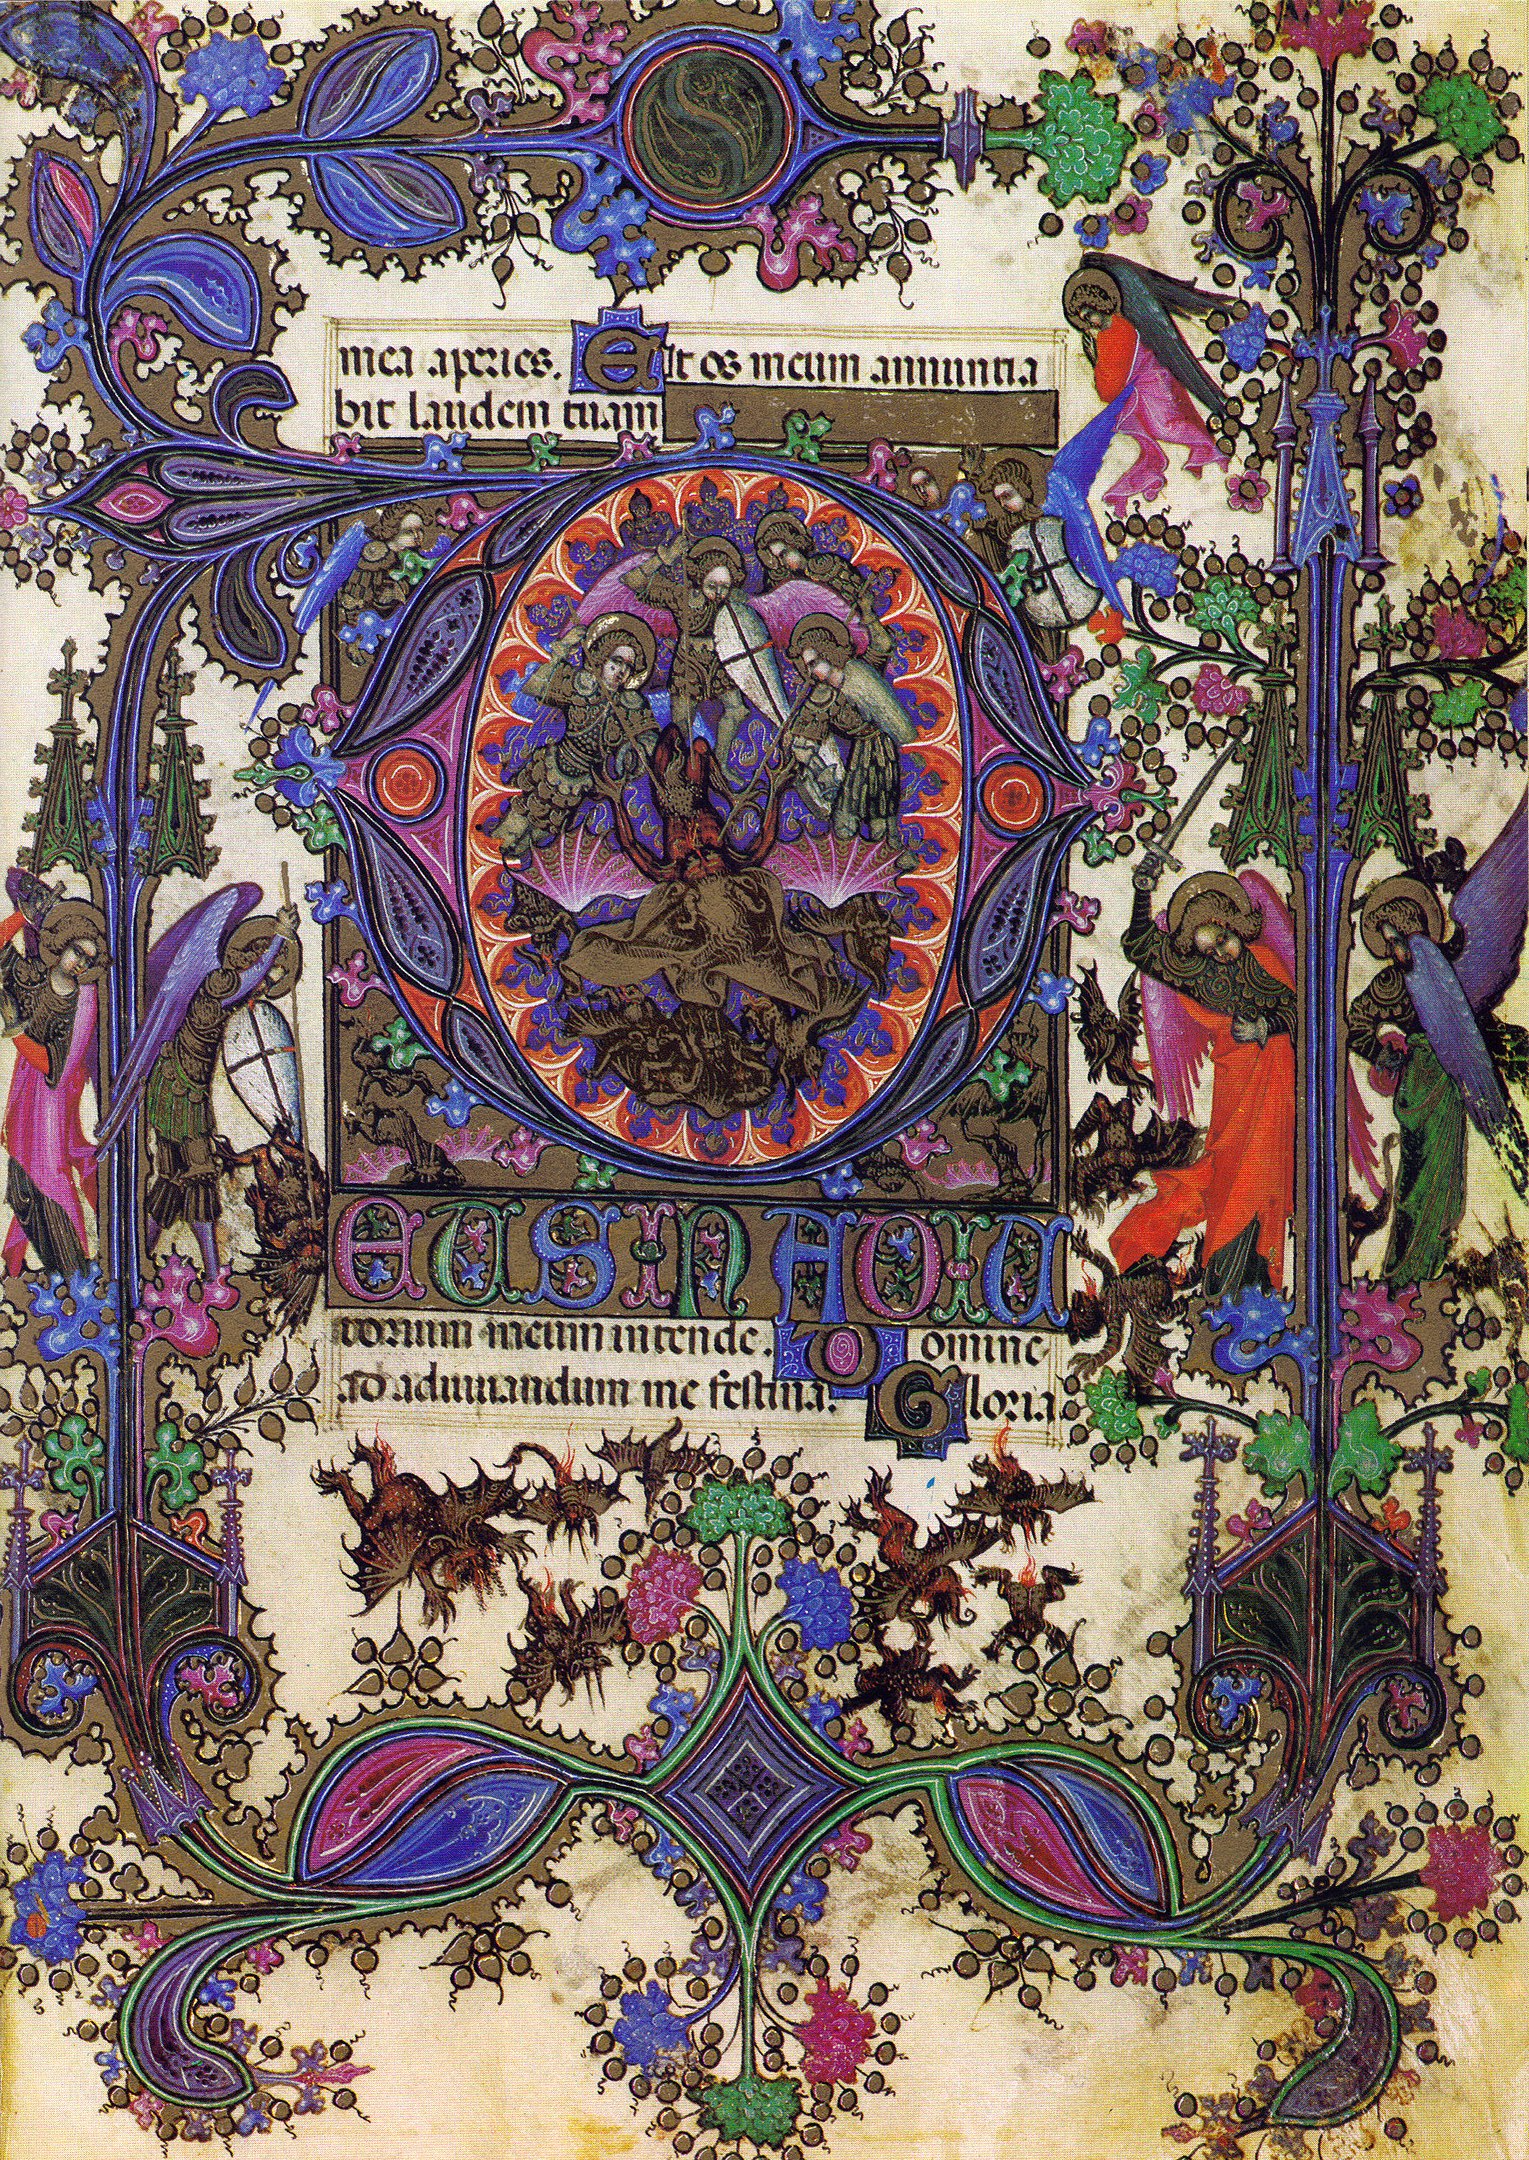 mea aperies. Et os meum annuntia
bit laudem tuam
D
EUS IN ADIU
torium meum intende. Domine
ad adiuuandum me festina. Gloria